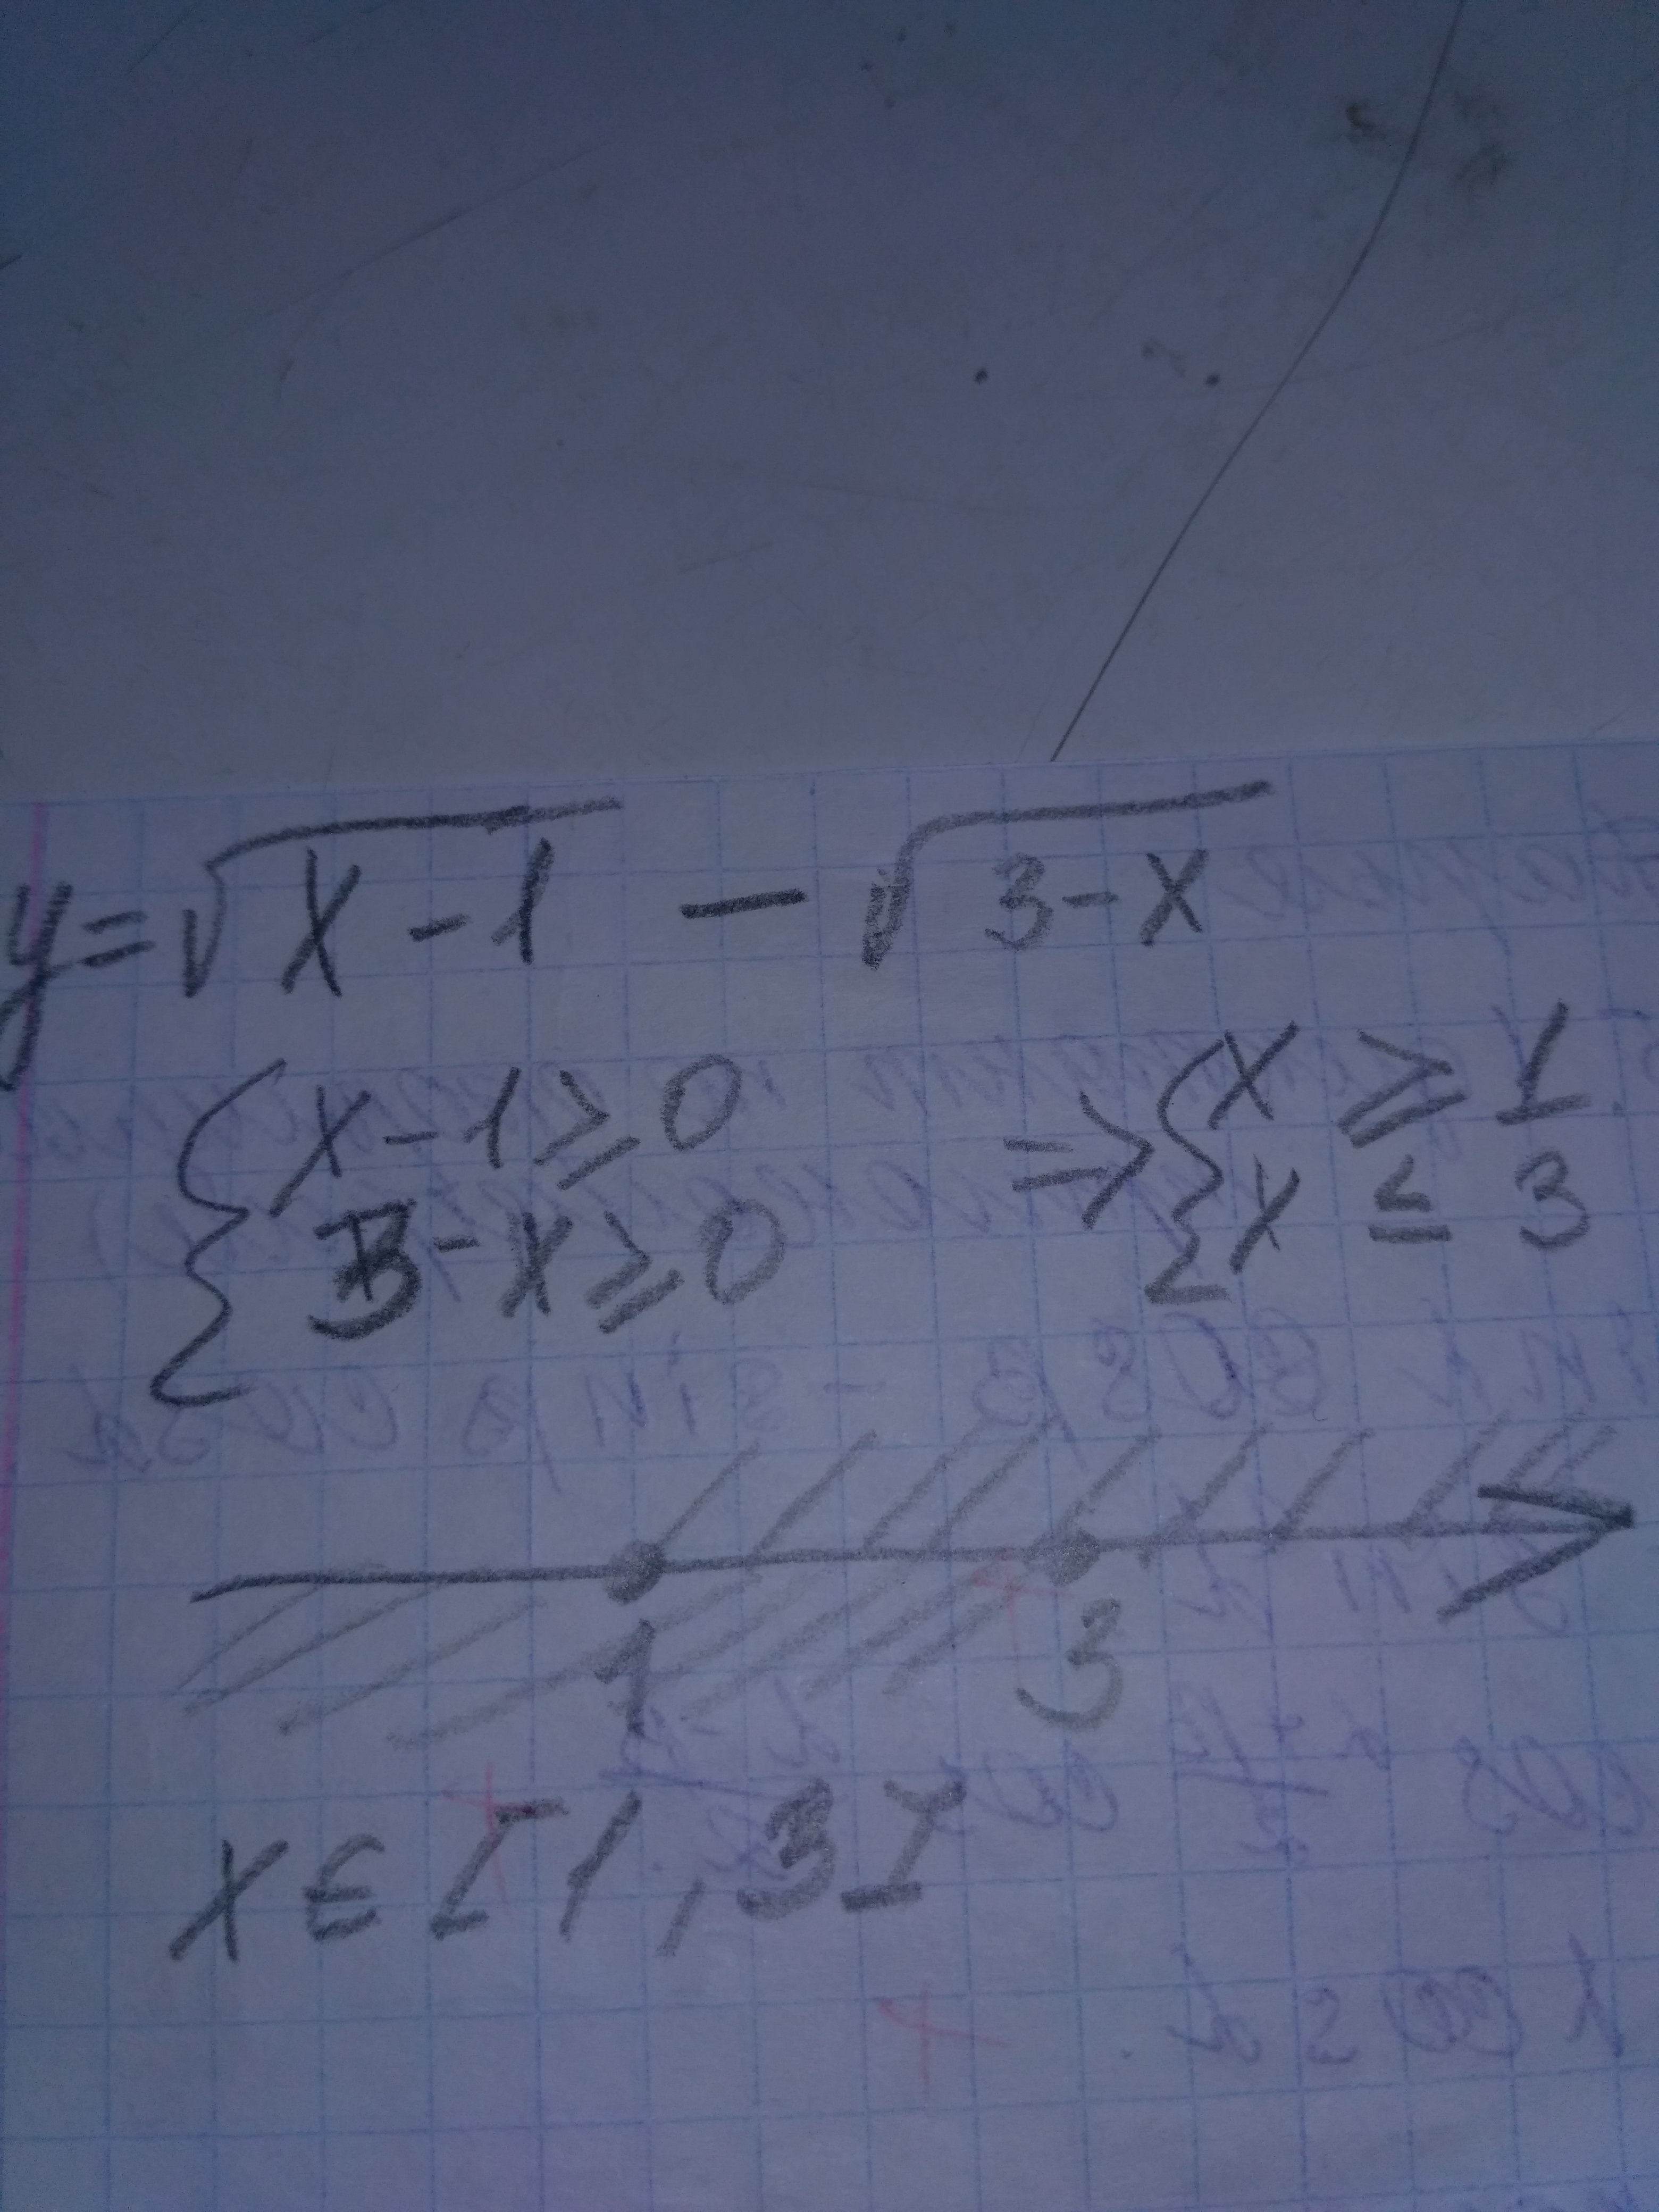 y = √x - 1 - √3 - x
{ x - 1 ≥ 0 => { x ≥ 1
3 - x ≥ 0 x ≤ 3
1 3
x ∈ [1, 3]